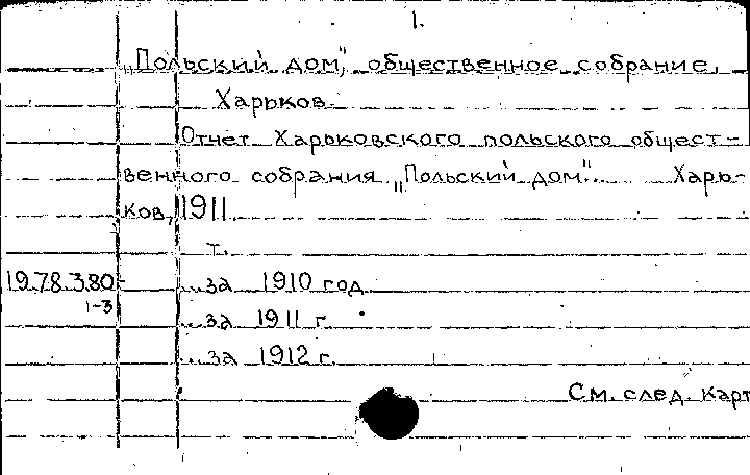 1.
„Польский дом", общественное собрание,
Харьков.
Отчет Харьковского польского общест-
венного собрания „Польский дом". Харь-
ков, 1911
т.
19.78.3.80 ...за 1910 год
1-3
...за 1911 г.
...за 1912 г.
См. след. карт